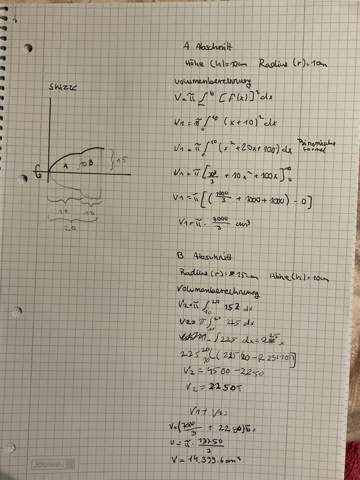 Skizze
A
10
B
15
10
10
20
A Abschnitt
Höhe (h)=10cm Radius (r)=1cm
Volumenberechnung
V=π ∫ [f(x)]² dx
V1=π ∫ (x+10)² dx
V1=π ∫ (x²+20x+100) dx Binomische Formel
V1=π [x³/3 + 10x² + 100x]
V1=π [(1000/3 + 1000+1000) - 0]
V1=π · 7000/3 cm³
B Abschnitt
Radius (r)= 15cm Höhe (h)=10cm
Volumenberechnung
V2=π ∫ 15² dx
V2=π ∫ 225 dx
∫ 225 dx = 225 x
225 · 20 - (225·10)
V2 = 4500 - 2250
V2 = 2250π
V1 + V2
V=(7000/3 + 2250)π
V=π · 13750/3
V= 14.399,6cm³